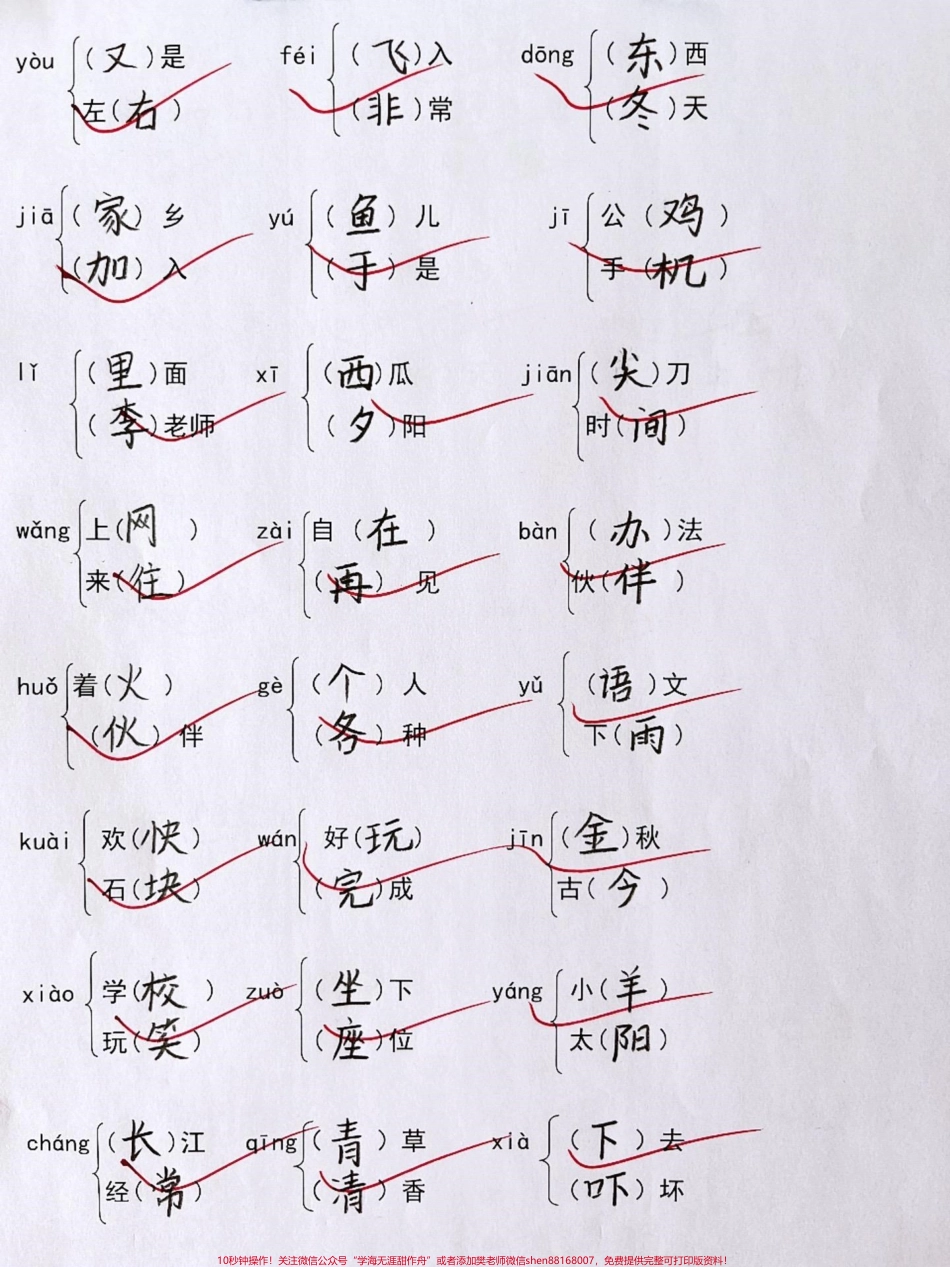 yòu （又）是 féi （飞）入 dōng （东）西
左（右） （非）常 （冬）天
jiā （家）乡 yú （鱼）儿 jī 公（鸡）
（加）入 （于）是 手（机）
lǐ （里）面 xī （西）瓜 jiān （尖）刀
（李）老师 （夕）阳 时（间）
wǎng 上（网） zài 自（在） bàn （办）法
来（往） （再）见 伙（伴）
huǒ 着（火） gè （个）人 yǔ （语）文
（伙）伴 （各）种 下（雨）
kuài 欢（快） wán 好（玩） jīn （金）秋
石（块） （完）成 古（今）
xiào 学（校） zuò （坐）下 yáng 小（羊）
玩（笑） （座）位 太（阳）
cháng （长）江 qīng （青）草 xià （下）去
经（常） （清）香 （吓）坏
10秒钟操作！关注微信公众号“学海无涯甜作舟”或者添加樊老师微信shen88168007，免费提供完整可打印版资料！